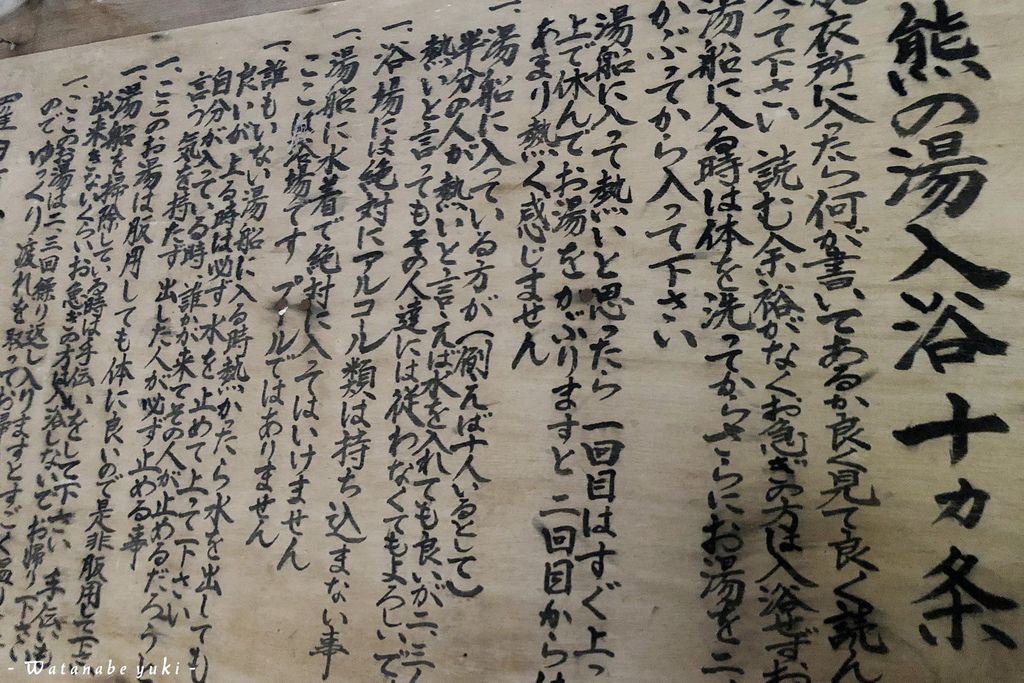 熊の湯入浴十カ条
衣所に入ったら何が書いてあるか良く見て良く読ん
って下さい 読む余裕がなくお急ぎの方は入浴せずお
湯船に入る時は体を洗ってからさらにお湯を二
かぶってから入って下さい
湯船に入って熱いと思ったら一回目はすぐ上っ
上で休んでお湯をかぶりますと二回目からは
あまり熱く感じません
一、湯船に入っている方が(例えば十人いるとして)
半分の人が熱いと言えば水を入れても良いが二、三
熱いと言ってもその人達には従わなくてもよろしいで
一、浴場には絶対にアルコール類は持ち込まない事
一、湯船に水着で絶対に入ってはいけません
ここは浴場です プールではありません
一、誰もいない湯船に入る時熱かったら水を出しても
良いが上る時は必ず水を止めて上って下さい
自分が入っている時誰かが来てその人が止めるだろうと
言う気を持たず出した人が必ず止める事
一、ここのお湯は服用しても体に良いので是非服用して下さ
一、湯船を掃除している時は手伝いをして下さい 手伝いも
出来きないくらいお急ぎの方は入浴しないでお帰り下さい
一、ここのお湯は二、三回繰り返し入りますとすごく温
のでゆっくり疲れを取ってお帰り下さい
- Watanabe yuki -